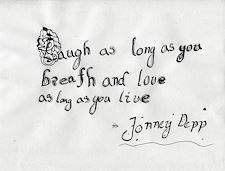 Laugh as long as you
breath and love
as long as you live
- Jonney Depp